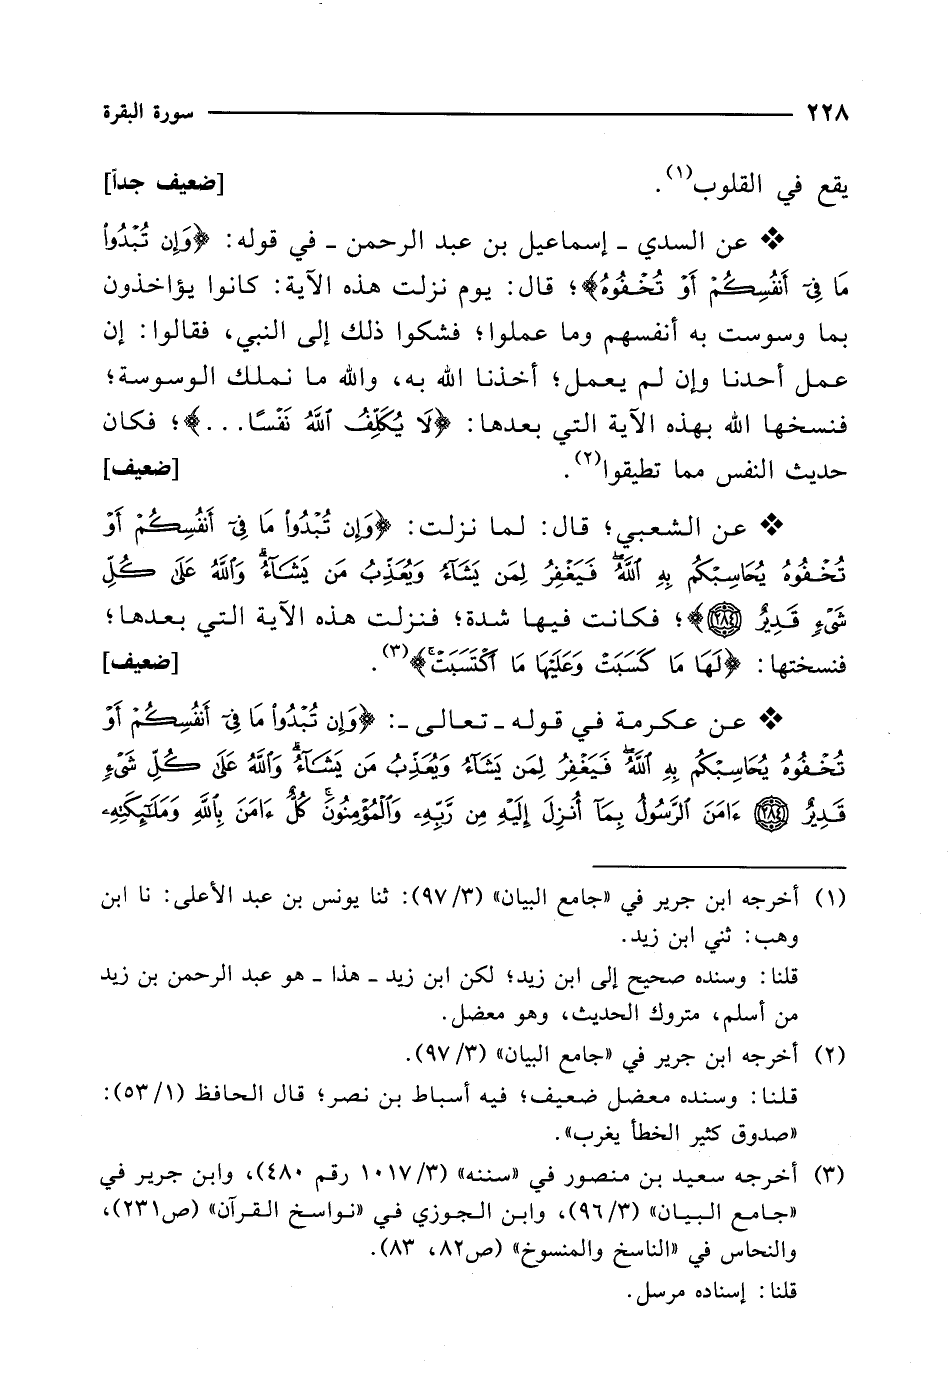 ٢٢٨ سورة البقرة
يقع في القلوب(١). [ضعيف جداً]
❖ عن السدي ـ إسماعيل بن عبد الرحمن ـ في قوله: ﴿وَإِن تُبْدُوا۟
مَا فِىٓ أَنفُسِكُمْ أَوْ تُخْفُوهُ﴾؛ قال: يوم نزلت هذه الآية: كانوا يؤاخذون
بما وسوست به أنفسهم وما عملوا؛ فشكوا ذلك إلى النبي، فقالوا: إن
عمل أحدنا وإن لم يعمل؛ أخذنا الله به، والله ما نملك الوسوسة؛
فنسخها الله بهذه الآية التي بعدها: ﴿لَا يُكَلِّفُ ٱللَّهُ نَفْسًا...﴾؛ فكان
حديث النفس مما تطيقوا(٢). [ضعيف]
❖ عن الشعبي؛ قال: لما نزلت: ﴿وَإِن تُبْدُوا۟ مَا فِىٓ أَنفُسِكُمْ أَوْ
تُخْفُوهُ يُحَاسِبْكُم بِهِ ٱللَّهُ ۖ فَيَغْفِرُ لِمَن يَشَآءُ وَيُعَذِّبُ مَن يَشَآءُ ۗ وَٱللَّهُ عَلَىٰ كُلِّ
شَىْءٍ قَدِيرٌ ﴿٢٨٤﴾﴾؛ فكانت فيها شدة؛ فنزلت هذه الآية التي بعدها؛
فنسختها: ﴿لَهَا مَا كَسَبَتْ وَعَلَيْهَا مَا ٱكْتَسَبَتْ ۗ﴾(٣). [ضعيف]
❖ عن عكرمة في قوله ـ تعالى ـ: ﴿وَإِن تُبْدُوا۟ مَا فِىٓ أَنفُسِكُمْ أَوْ
تُخْفُوهُ يُحَاسِبْكُم بِهِ ٱللَّهُ ۖ فَيَغْفِرُ لِمَن يَشَآءُ وَيُعَذِّبُ مَن يَشَآءُ ۗ وَٱللَّهُ عَلَىٰ كُلِّ شَىْءٍ
قَدِيرٌ ﴿٢٨٤﴾ ءَامَنَ ٱلرَّسُولُ بِمَآ أُنزِلَ إِلَيْهِ مِن رَّبِّهِۦ وَٱلْمُؤْمِنُونَ ۚ كُلٌّ ءَامَنَ بِٱللَّهِ وَمَلَـٰٓئِكَتِهِۦ
(١) أخرجه ابن جرير في «جامع البيان» (٣/ ٩٧): ثنا يونس بن عبد الأعلى: نا ابن
وهب: ثني ابن زيد.
قلنا: وسنده صحيح إلى ابن زيد؛ لكن ابن زيد ـ هذا ـ هو عبد الرحمن بن زيد
من أسلم، متروك الحديث، وهو معضل.
(٢) أخرجه ابن جرير في «جامع البيان» (٣/ ٩٧).
قلنا: وسنده معضل ضعيف؛ فيه أسباط بن نصر؛ قال الحافظ (١/ ٥٣):
«صدوق كثير الخطأ يغرب».
(٣) أخرجه سعيد بن منصور في «سننه» (٣/ ١٠١٧ رقم ٤٨٠)، وابن جرير في
«جامع البيان» (٣/ ٩٦)، وابن الجوزي في «نواسخ القرآن» (ص٢٣١)،
والنحاس في «الناسخ والمنسوخ» (ص٨٢، ٨٣).
قلنا: إسناده مرسل.